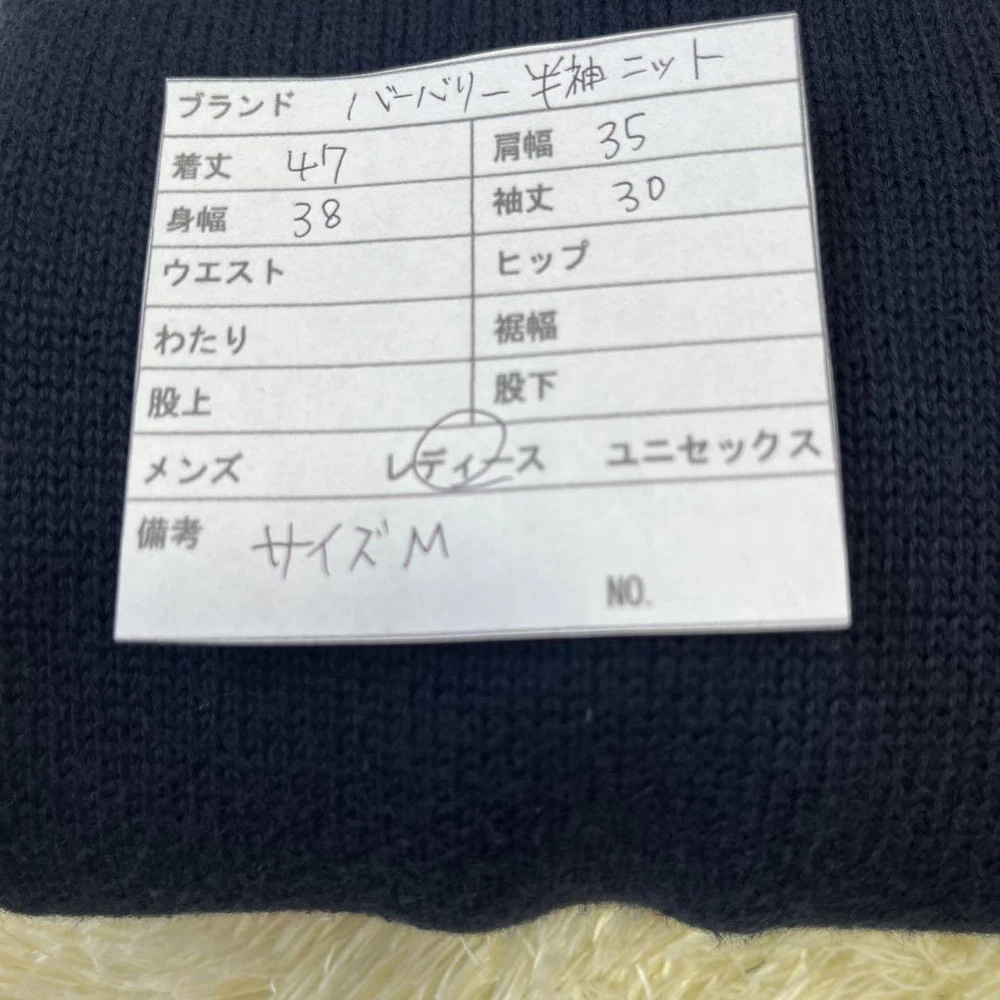 ブランド バーバリー 半袖 ニット
着丈 47 肩幅 35
身幅 38 袖丈 30
ウエスト ヒップ
わたり 裾幅
股上 股下
メンズ レディース ユニセックス
備考 サイズM
NO.